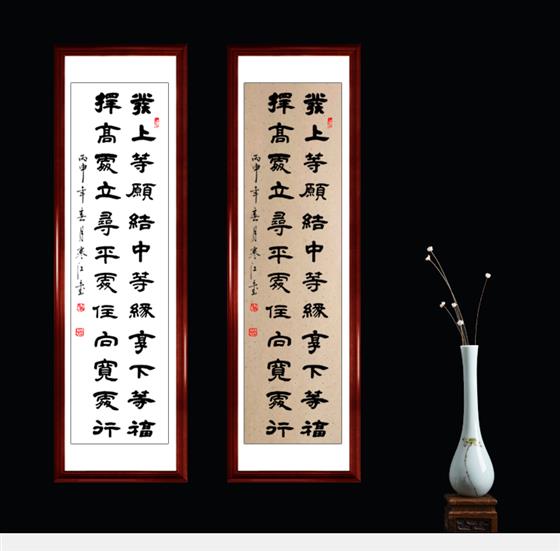 發上等願結中等緣享下等福
擇高處立尋平處住向寬處行
丙申年春月寒江
發上等願結中等緣享下等福
擇高處立尋平處住向寬處行
丙申年春月寒江